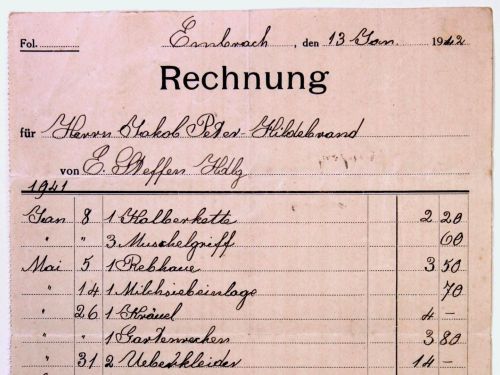 Fol. Embrach, den 13 Jan. 1942
Rechnung
für Herrn Jakob Peter-Hildebrand
von E. Steffen Hdlg
1941
Jan 8 1 Kalberkette 2 20
" " 3 Muschelgriff 60
Mai 5 1 Rebhaue 3 50
" 14 1 Milchsiebeinlage 70
" 26 1 Kräuel 4 -
" 1 Gartenrechen 3 80
" 31 2 Ueberkleider 14 -